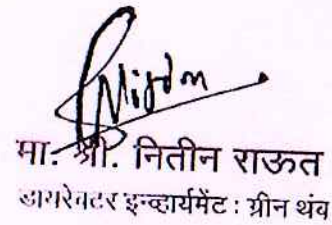 मा. श्री. नितीन राऊत
डायरेक्टर इन्व्हायर्मेंट : ग्रीन थंब